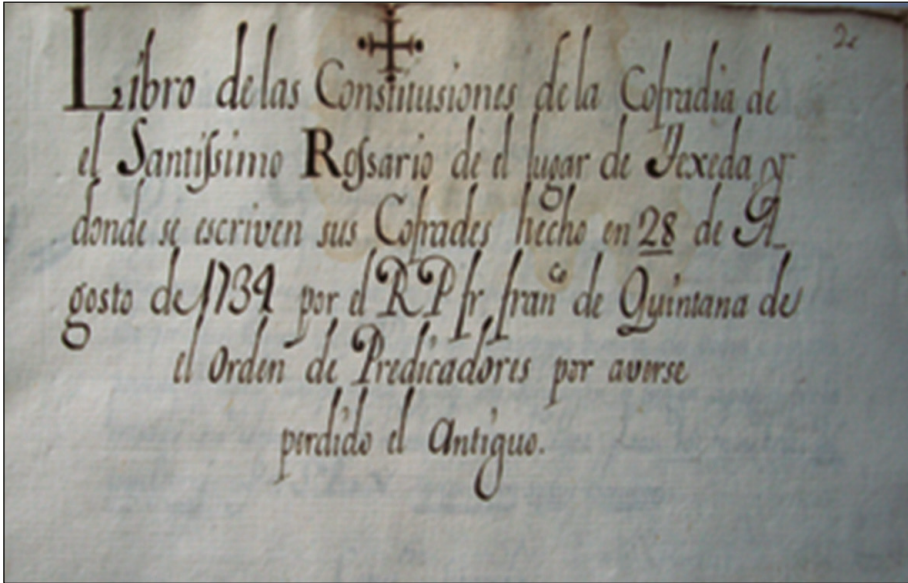 2
Libro de las Constitusiones de la Cofradia de
el Santiſsimo Roſsario de el lugar de Texeda, y
donde se escriven sus Cofrades hecho en 28 de A-
gosto de 1734 por el R P fr. franco de Quintana de
el Orden de Predicadores por averse
perdido el Antiguo.